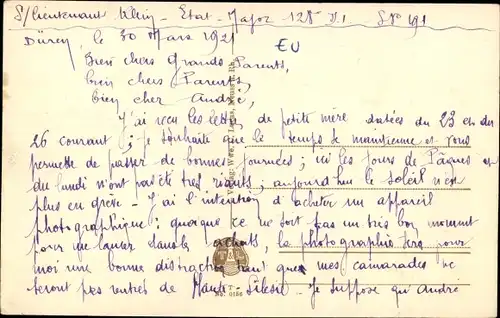 S/lieutenant Klein - Etat-Major 128 D.I S.P. 191
Düren, le 30 Mars 1921
EU
Bien chers Grands Parents,
bien chers Parents,
bien cher André,
J'ai reçu les lettres de petite mère datées du 23 et du
26 courant ; je souhaite que le temps se maintienne et vous
permette de passer de bonnes journées ; ici les jours de Pâques et
du lundi n'ont pas été très riants ; aujourd'hui le soleil n'est
plus en grève - J'ai l'intention d'acheter un appareil
photographique : quoique ce ne soit pas un très bon moment
pour se lancer dans les achats, la photographie sera pour
moi une bonne distraction tant que mes camarades ne
seront pas rentrés de Haute-Silésie - Je suppose qu'André
No. 0186